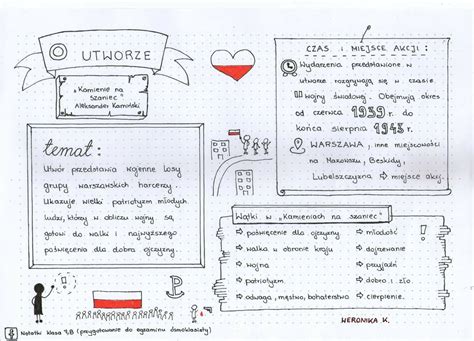 O UTWORZE
„Kamienie na
szaniec"
Aleksander Kamiński
temat :
Utwór przedstawia wojenne losy
grupy warszawskich harcerzy.
Ukazuje wielki patriotyzm młodych
ludzi, którzy w obliczu wojny są
gotowi do walki i najwyższego
poświęcenia dla dobra ojczyzny.
CZAS I MIEJSCE AKCJI :
Wydarzenia przedstawione w
utworze rozgrywają się w czasie
II wojny światowej. Obejmują okres
od czerwca 1939 do
końca sierpnia 1943 r.
WARSZAWA , inne miejscowości
na Mazowszu, Beskidy,
Lubelszczyzna ⇨ miejsce akcji.
Wątki w „Kamieniach na szaniec"
⇨ poświęcenie dla ojczyzny
⇨ walka w obronie kraju
⇨ wojna
⇨ patriotyzm
⇨ odwaga , męstwo, bohaterstwo
⇨ młodość
⇨ dojrzewanie
⇨ przyjaźń
⇨ dobro i zło
⇨ cierpienie.
WERONIKA K.
Notatki klasa 7,8 (przygotowanie do egzaminu ósmoklasisty)